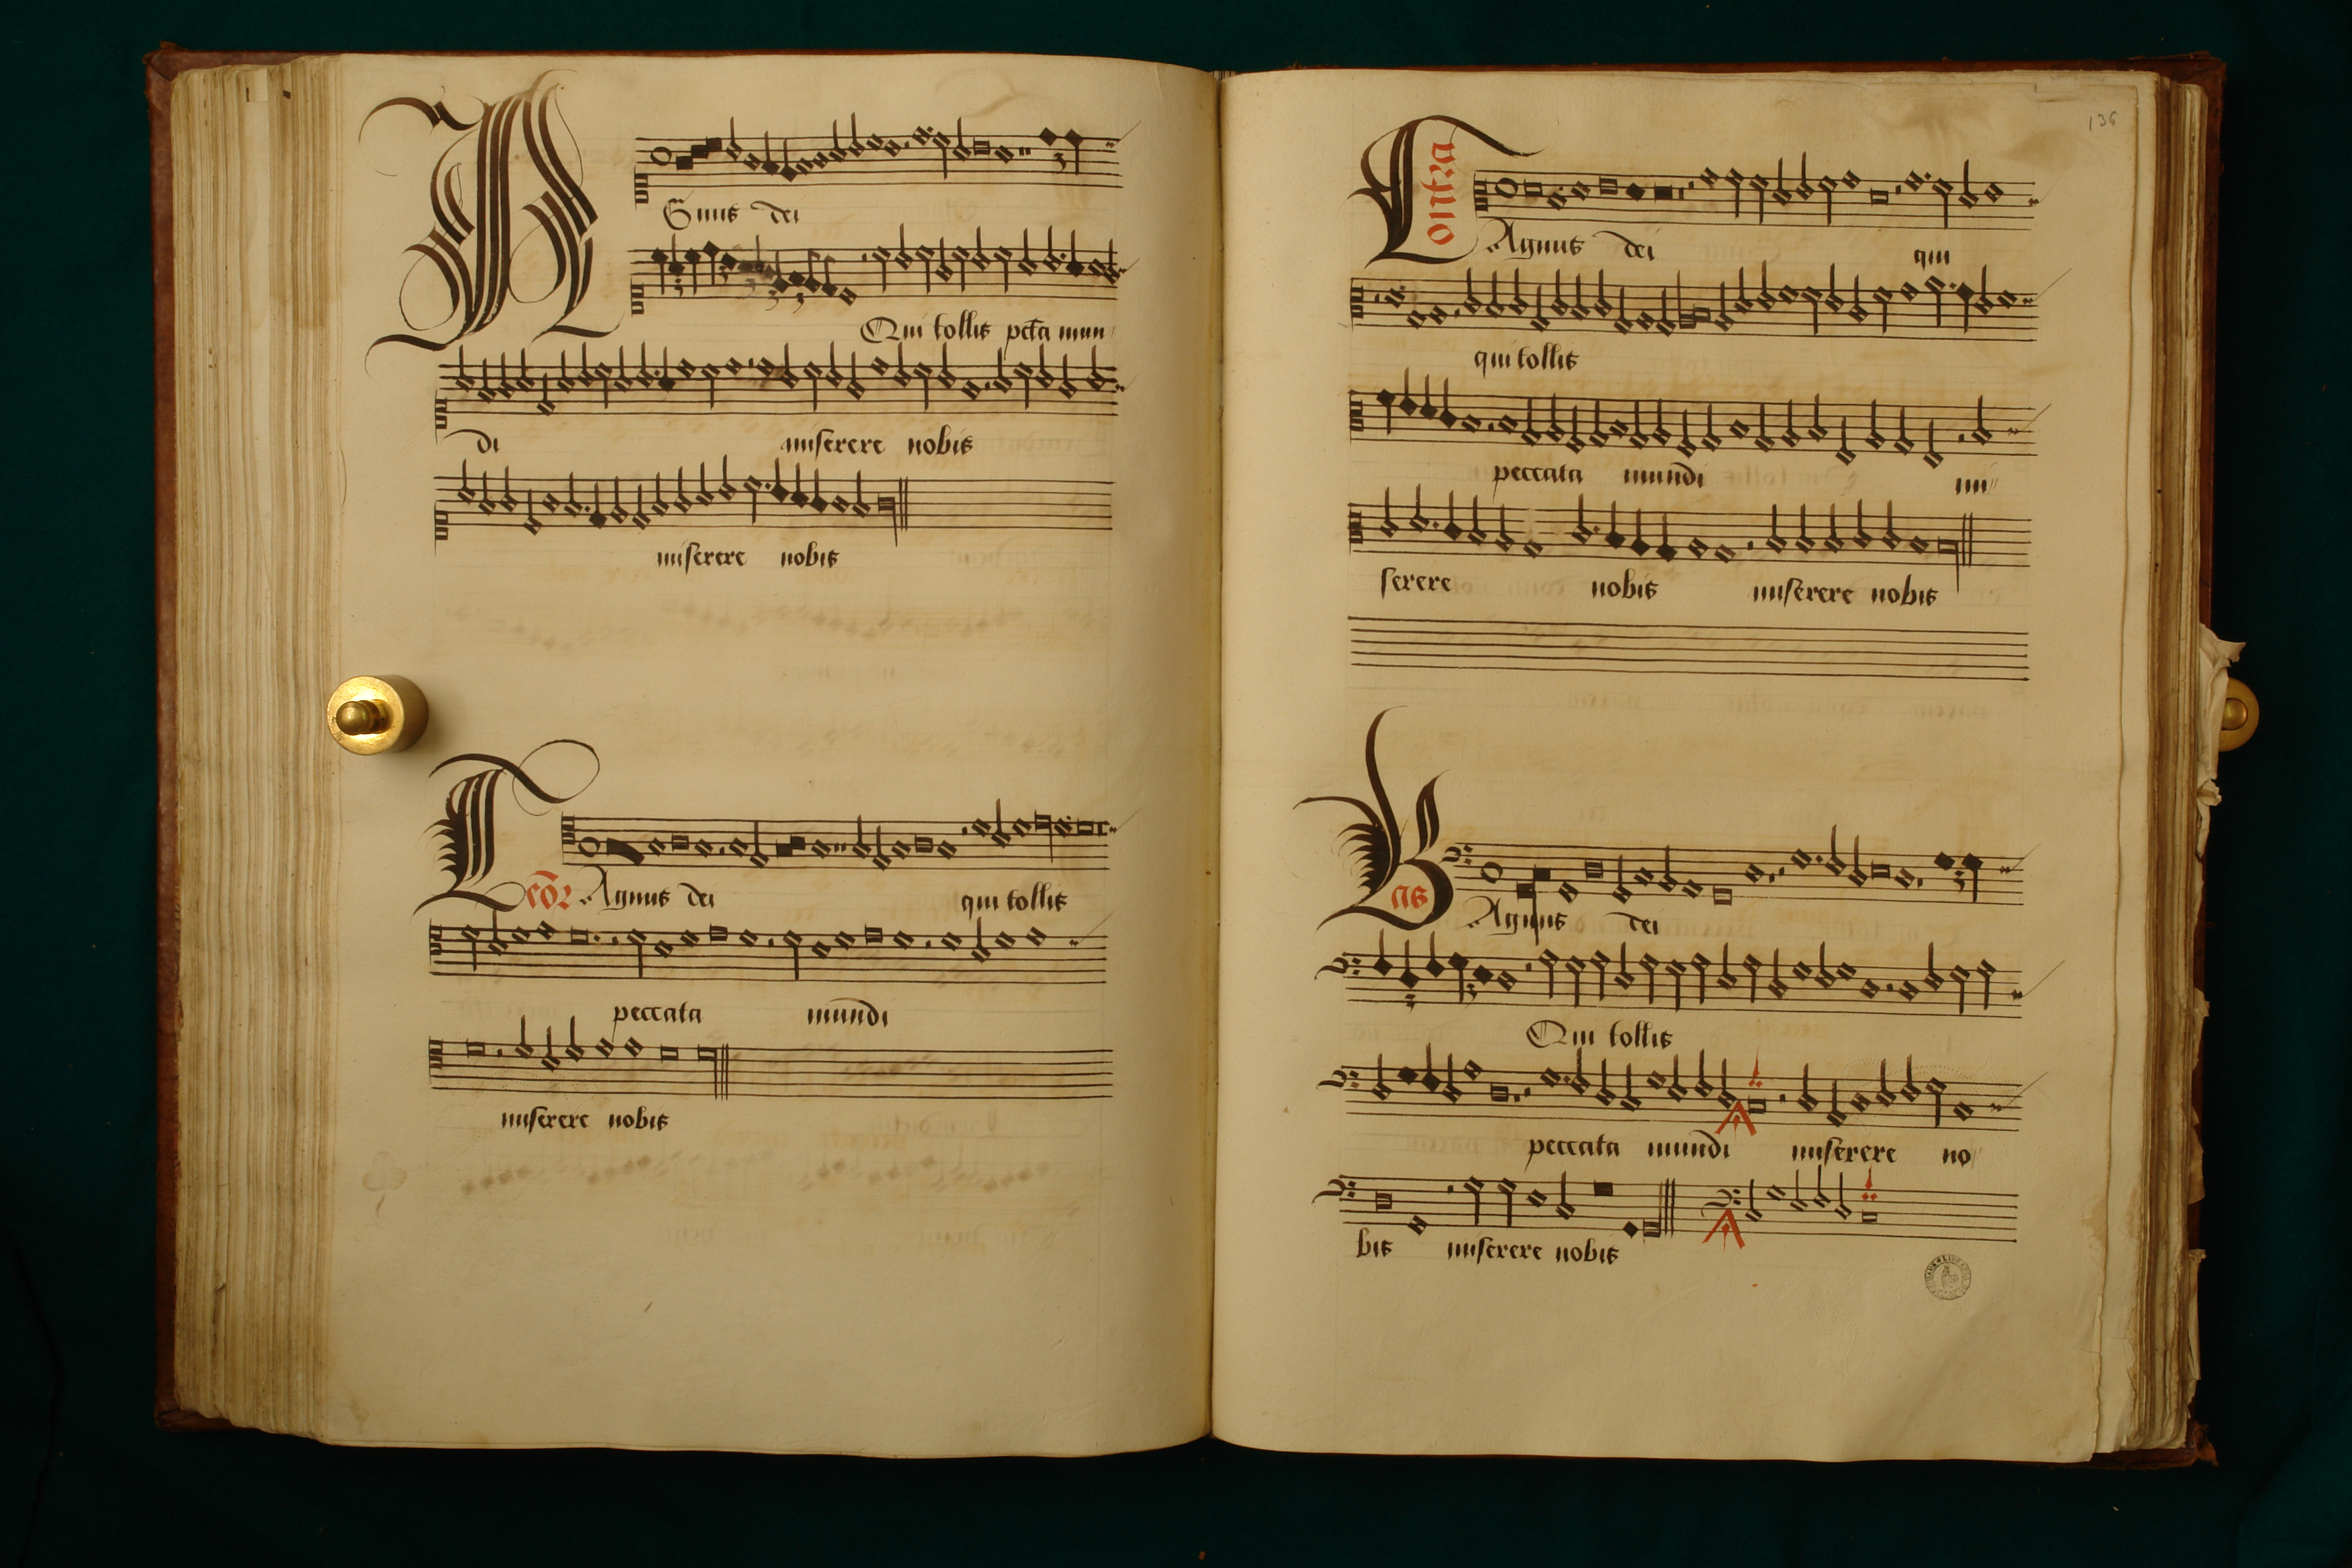 Agnus dei
Qui tollis pctā mun
di miserere nobis
miserere nobis
Teōr Agnus dei qui tollis
peccata mundi
miserere nobis
136
Contra
Agnus dei qui
qui tollis
peccata mundi mi
serere nobis miserere nobis
Bas
Agnus dei
Qui tollis
peccata mundi miserere no
bis miserere nobis